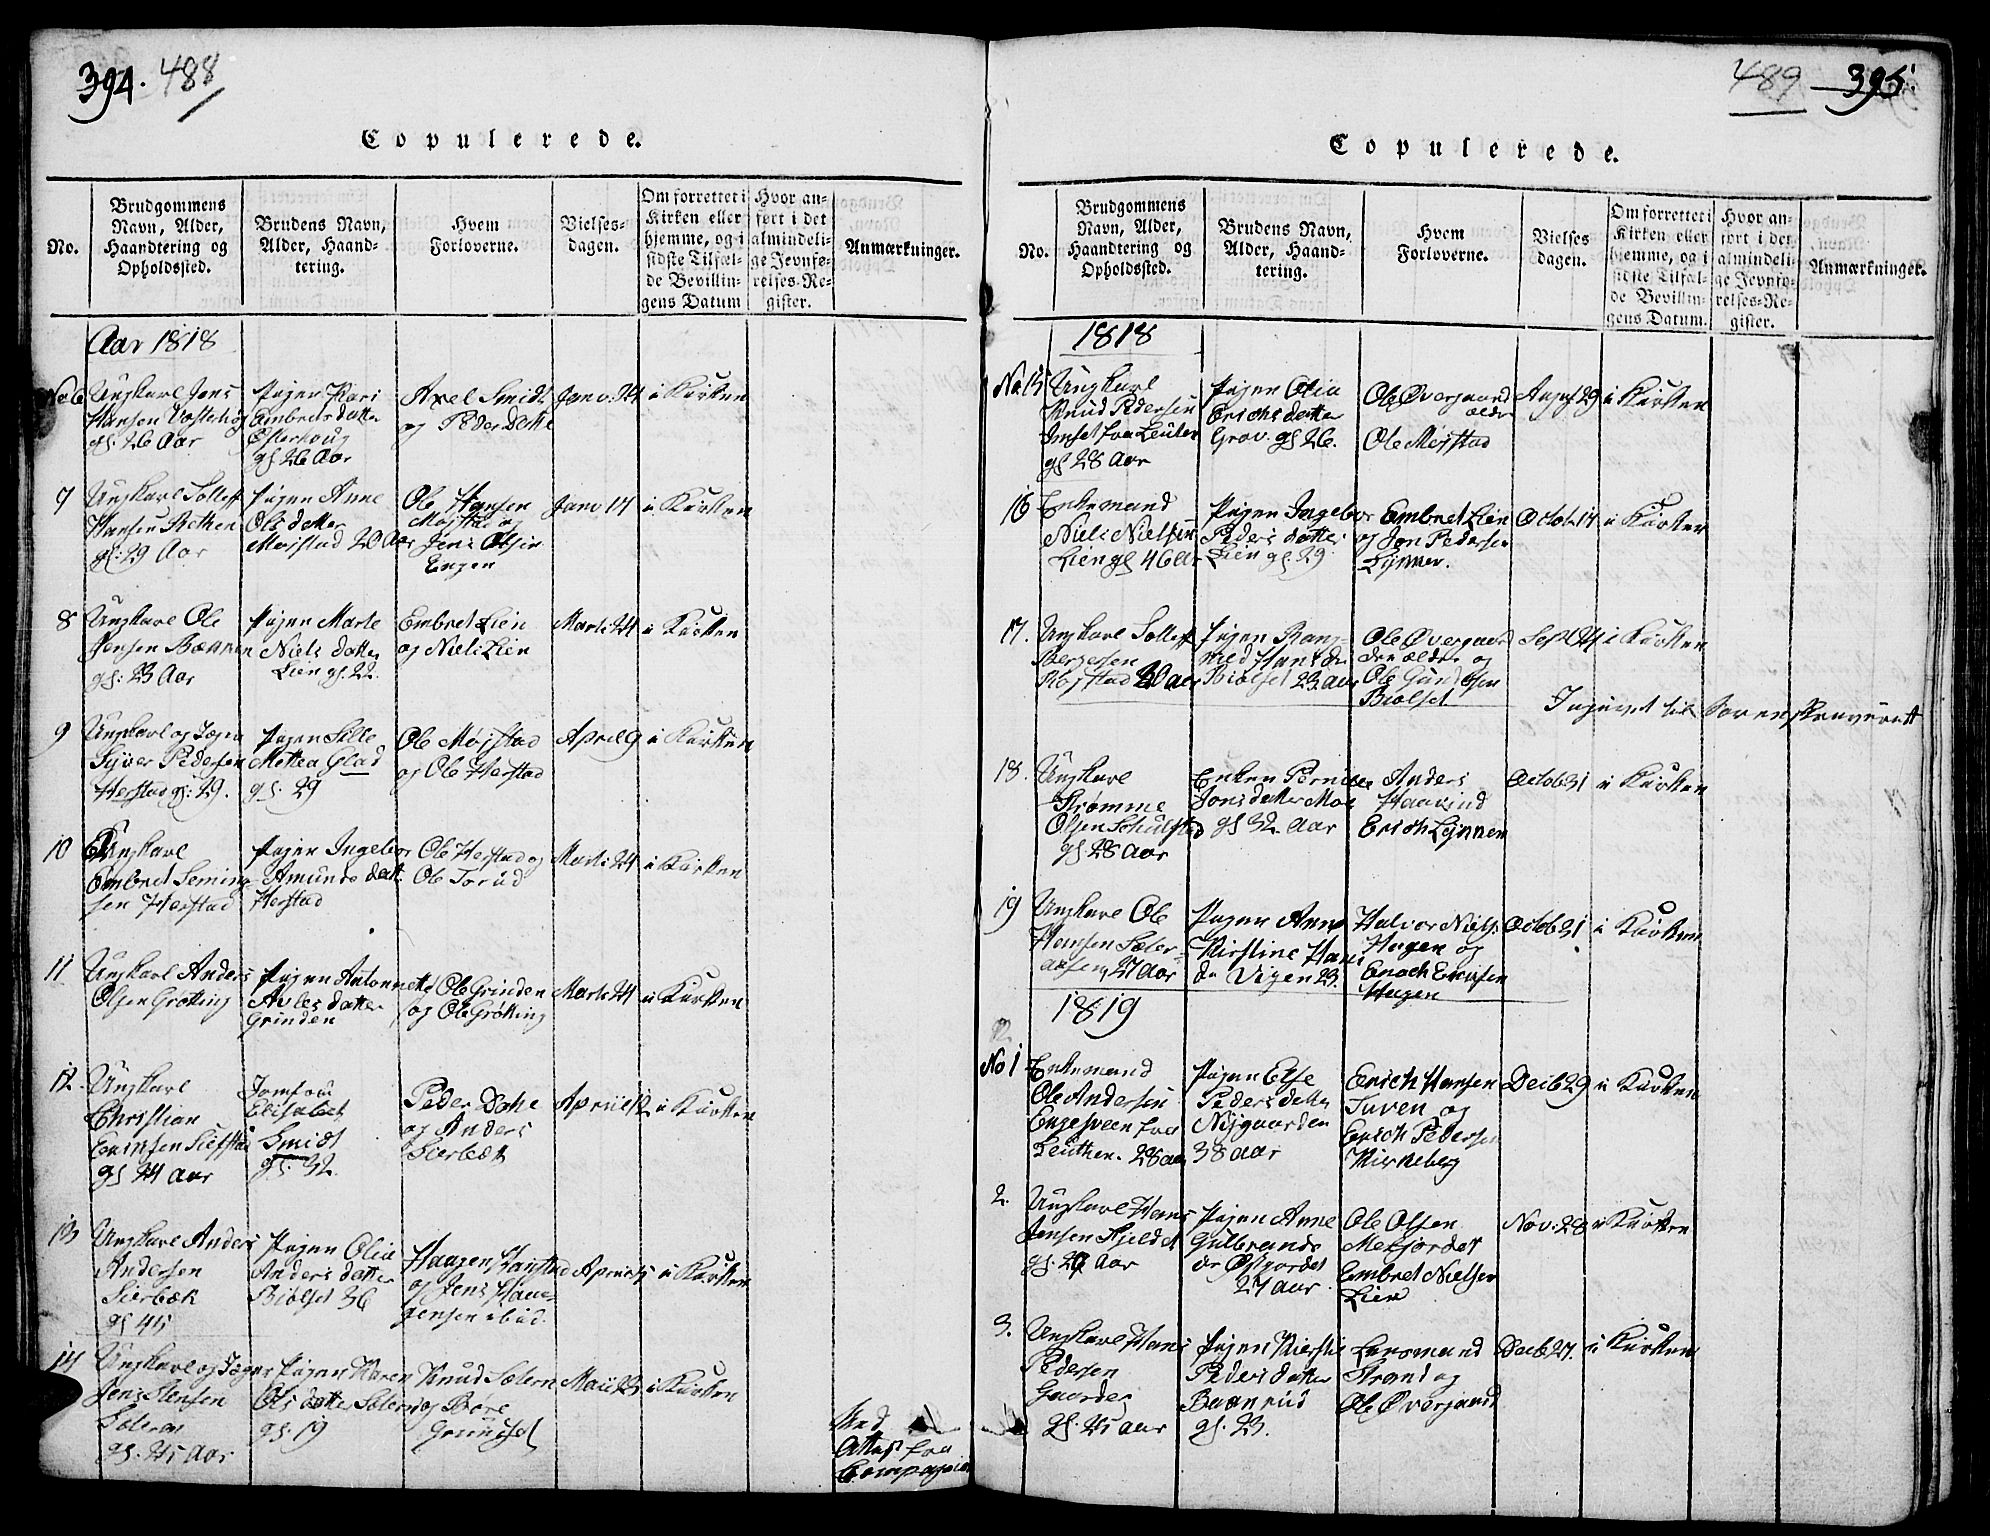 394. 488
Copulerede.
No.
Brudgommens
Navn, Alder,
Haandtering og
Opholdssted.
Brudens Navn,
Alder, Haand-
tering.
Hvem
Forloverne.
Vielses-
dagen.
Om forrettet i
Kirken eller
hjemme, og i
sidste Tilfæl-
de Bevillin-
gens Datum
Hvor an-
ført i det
almindeli-
ge Jevnfø-
relses-Re-
gister.
Anmærkninger.
Aar 1818
No 6
Ungkarl Jens
Hansen
gl. 26 Aar
Pigen Kari
Embretsdatter
Esterhoug
gl 26 Aar
Axel Smidt
og Peder Dette
Janv. 24
i Kirken
7
Ungkarl Tollef
Hansen Rothen
gl: 29 Aar
Pigen Anne
Olsdatter
Mojstad 20 Aar
Ole Hansen
Mojstad og
Jens Olsen
Engen
Janv 17
i Kirken
8
Ungkarl Ole
Jensen Bænnen
gl: 23 Aar
Pigen Marte
Niels datter
Lien gl. 22.
Embret Lien
og Niels Lien
Marti 24
i Kirken
9
Ungkarl og
Syver Pedersen
Herstad gl: 29.
Pigen Sille
Mettea Glad
gl. 29
Ole Mojstad
og Ole Herstad
April 9
i Kirken
10
Ungkarl
Embret Seming-
sen Herstad
Pigen Ingebor
Amunds datt.
Herstad
Ole Herstad og
Ole Torud
Marti 24
i Kirken
11
Ungkarl Anders
Olsen Grøtting
Pigen Antonnette
datter
Grinden
Ole Grinden
og Ole Grøtting
Marti 24
i Kirken
12
Ungkarl
Christian
Erichsen
gl 24 Aar
Jomfru
Elisabet
Smidt
gl. 32.
Peder Dette
og Anders
Sierbæk
April 12
i Kirken
13
Ungkarl Anders
Andersen
Sierbæk
gl 45
Pigen Olia
Anders datter
Biølset 36
Haagen Hanstad
og Jens Haa-
gensen ibid.
April 5
i Kirken
14
Ungkarl og Jæger
Jens Stensen
Solerøe
gl. 25 Aar
Pigen Karen
Ols datter
gl. 19
Knud
og Børe
Grundset
Maii 23
i Kirken
Med
Attest fra
Compagniet
489 395.
Copulerede.
No.
Brudgommens
Navn, Alder,
Haandtering og
Opholdssted.
Brudens Navn,
Alder, Haand-
tering.
Hvem
Forloverne.
Vielses
dagen.
Om forrettet i
Kirken eller
hjemme, og i
sidste Tilfæl-
de Bevillin-
gens Datum.
Hvor an-
ført i det
almindeli-
ge Jevnfø-
relses-Re-
gister.
Anmærkninger.
1818
No. 15
Ungkarl
Knud Pedersen
Imset fra
gl 28 Aar
Pigen Olia
Erichs datter
Grov. gl 26.
Ole Øvergaard
ældre
Ole Mojstad
August 29
i Kirken
16
Enkemand
Niels Nielsen
Lien gl 46 Aar
Pigen Ingebor
Peders datter
Lien gl. 29
Embret Lien
og Jon Pedersen
Lynner.
Octob. 14
i Kirken
17.
Ungkarl Tollef
Bergersen
Mojstad 20 Aar
Pigen Rang-
nild
Biølset 23 Aar
Ole Øvergaard
den ældre og
Ole
Biølset
Sept 24
i Kirken
til Sorenskriveriet
18.
Ungkarl
Strømme
Olsen Schulstad
gl 28 Aar
Enken Pernille
Jons datter Moe
gl 32 Aar
Anders
Haavind
Erich Lynnen
Octob 31
i Kirken
19
Ungkarl Ole
Hansen
27 Aar
Pigen Anne
Kirstine Hans
da Vigen 23.
Halvor Niels.
Hagen og
Enoch Ericsen
Hagen
Octob 31
i Kirken
1819
No 1
Enkemand
Ole Andersen
Engesveen fra
Leuthen. 28 Aar
Pigen Else
Peders datter
Nygaarden
38 Aar
Erich Hansen
Tuven og
Erich Pedersen
Kirkeberg
Decb 29
i Kirken
2.
Ungkarl Hans
Jensen Kjeldet
gl. 29 Aar
Pigen Anne
Gulbrands
dr Østgordet
27 Aar
Ole Olsen
Mefjordet
Embret Nielsen
Lien
Nov. 28
i Kirken
3.
Ungkarl Hans
Pedersen
Gaarder
gl. 25 Aar
Pigen Kiersti
Peders datter
Baanrud
gl. 23.
Lensmand
Strand og
Ole Øvergaard
Decb 27.
i Kirken